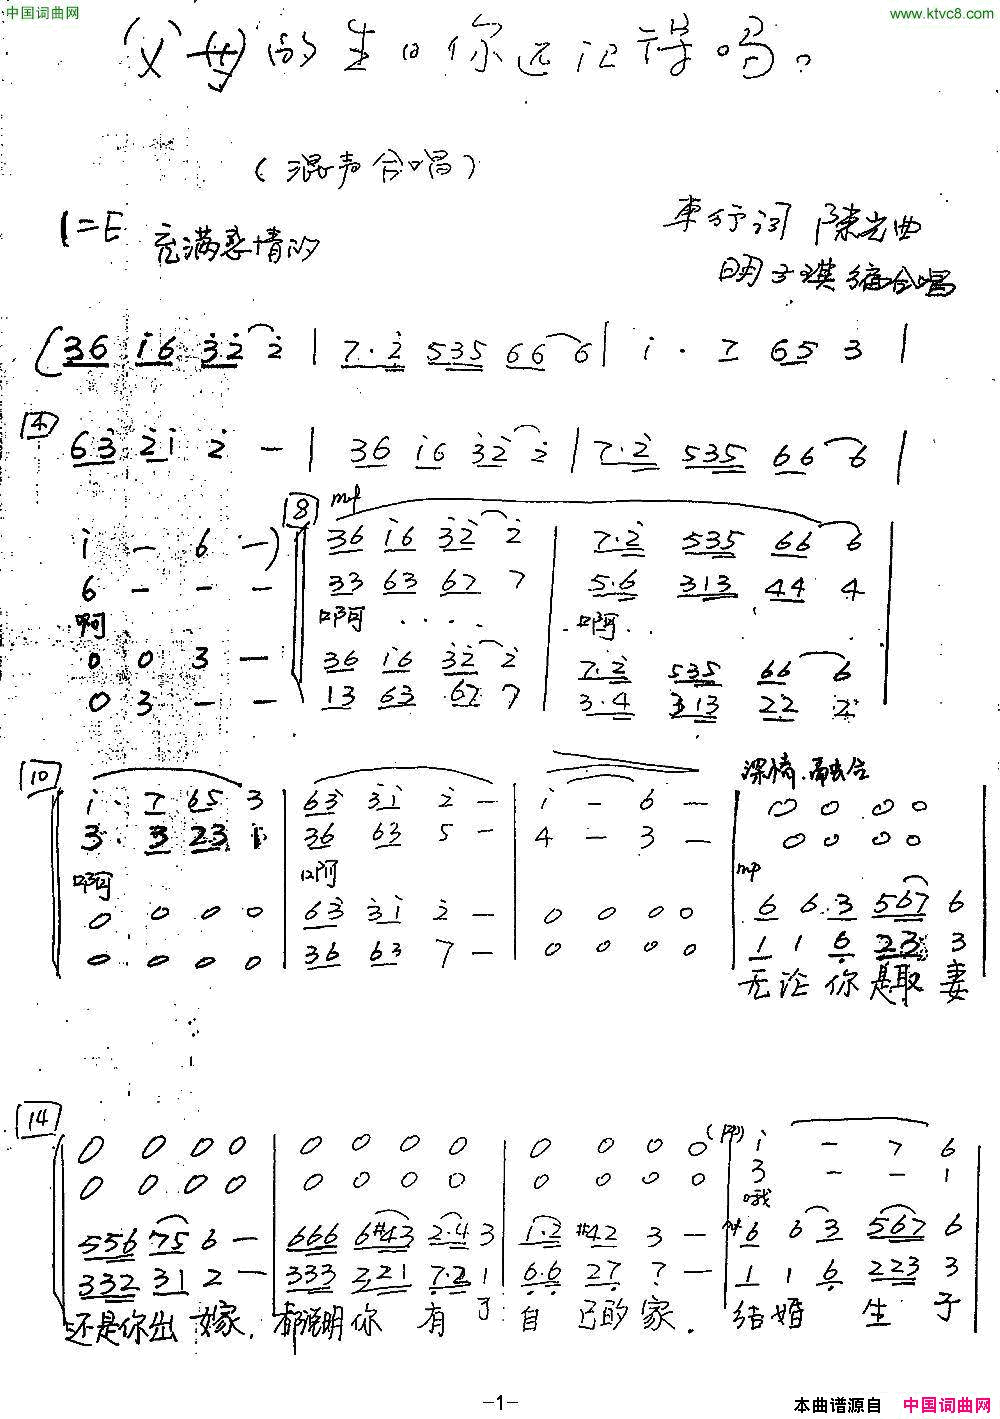 中国词曲网
www.ktvc8.com
(父母)的生日你还记得吗。
(混声合唱)
1=E 充满感情的
车行词 陈光曲
明子琪编合唱
(36 i6 32 2 | 7·2 535 66 6 | i · 7 65 3 |
4
63 2i 2 - | 36 i6 32 2 | 7·2 535 66 6 |
8 mp
i - 6 -) 36 i6 32 2 | 7·2 535 66 6
6 - - - 33 63 67 7 | 5·6 313 44 4
啊 啊 · · · · 啊 · ·
0 0 3 - 36 i6 32 2 | 7·2 535 66 6
0 3 - - 13 63 67 7 | 3·4 313 22 2
10 深情.融合
i · 7 65 3 | 63 3i 2 - | i - 6 - | 0 0 0 0
3 · 3 23 1 | 36 63 5 - | 4 - 3 - | 0 0 0 0
啊 啊 mp
0 0 0 0 | 63 3i 2 - | 0 0 0 0 | 6 6 3 567 6
0 0 0 0 | 36 63 7 - | 0 0 0 0 | 1 1 6 23 3
无论你是取妻
14
0 0 0 0 | 0 0 0 0 | 0 0 0 0 | (pp) i - 7 6
0 0 0 0 | 0 0 0 0 | 0 0 0 0 | 3 - - 1
哦
556 75 6 - | 666 6#43 2·4 3 | 1·2 #42 3 - | 6 6 3 567 6
332 31 2 - | 333 221 7·2 1 | 6·6 27 7 - | 1 1 6 223 3
还是你出嫁. 都说明你有了自己的家. 结婚生子
-1-
本曲谱源自 中国词曲网